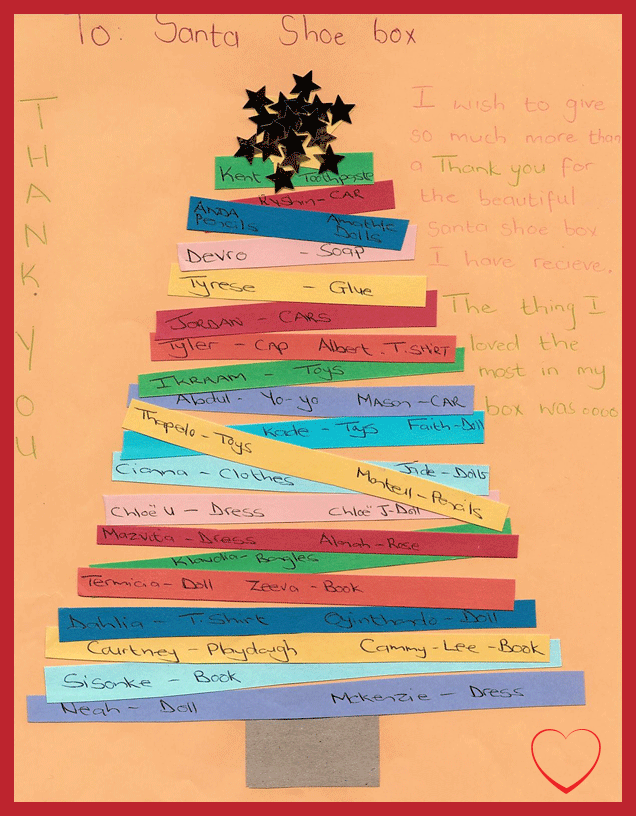 To: Santa Shoe box
THANK YOU
I wish to give
so much more than
a Thank you for
the beautiful
santa shoe box
I have recieve.
The thing I
loved the
most in my
box was....
Kent - Toothpaste
- CAR
ANDA Pencils
Dolls
Devro - Soap
Tyrese - Glue
JORDAN - CARS
Tyler - Cap Albert - T.SHIRT
IKRAAM - Toys
Abdul - Yo-yo Mason - CAR
Kade - Toys Faith - Doll
Thapelo - Toys
Montell - Pencils
Cianna - Clothes Jade - Dolls
Chloë U - Dress Chloë J - Doll
Mazvita - Dress Alanah - Rose
Klawdia - Bangles
Termicia - Doll Zeeva - Book
Dahlia - T.Shirt - Doll
Courtney - Playdough Cammy-Lee - Book
Sisanke - Book
Neah - Doll Mckenzie - Dress